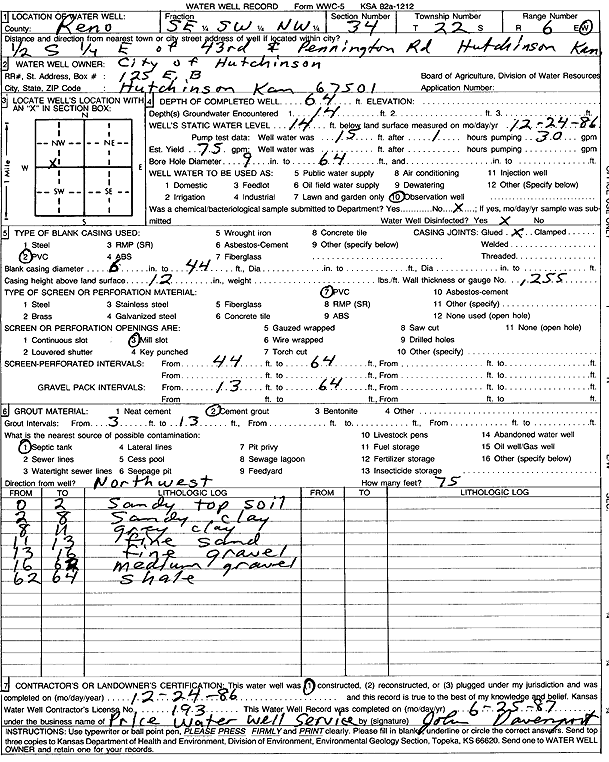 WATER WELL RECORD Form WWC-5 KSA 82a-1212
1 LOCATION OF WATER WELL: Fraction Section Number Township Number Range Number
County: Reno SE ¼ SW ¼ NW ¼ 34 T 22 S R 6 E/W
Distance and direction from nearest town or city street address of well if located within city?
1/2 S 1/4 E of 43rd & Pennington Rd Hutchinson Kan
2 WATER WELL OWNER: City of Hutchinson
RR#, St. Address, Box # : 125 E, B Board of Agriculture, Division of Water Resources
City, State, ZIP Code : Hutchinson Kan 67501 Application Number:
3 LOCATE WELL'S LOCATION WITH AN "X" IN SECTION BOX:
N
NW NE
W X E
SW SE
S
1 Mile
4 DEPTH OF COMPLETED WELL 64 ft. ELEVATION:
Depth(s) Groundwater Encountered 1. 14 ft. 2. ft. 3. ft.
WELL'S STATIC WATER LEVEL 14 ft. below land surface measured on mo/day/yr 12-24-86
Pump test data: Well water was 15 ft. after 1 hours pumping 30 gpm
Est. Yield 75 gpm: Well water was ft. after hours pumping gpm
Bore Hole Diameter 9 in. to 64 ft., and in. to ft.
WELL WATER TO BE USED AS: 5 Public water supply 8 Air conditioning 11 Injection well
1 Domestic 3 Feedlot 6 Oil field water supply 9 Dewatering 12 Other (Specify below)
2 Irrigation 4 Industrial 7 Lawn and garden only 10 Observation well
Was a chemical/bacteriological sample submitted to Department? Yes No X ; If yes, mo/day/yr sample was submitted
Water Well Disinfected? Yes X No
5 TYPE OF BLANK CASING USED: 5 Wrought iron 8 Concrete tile CASING JOINTS: Glued X Clamped
1 Steel 3 RMP (SR) 6 Asbestos-Cement 9 Other (specify below) Welded
2 PVC 4 ABS 7 Fiberglass Threaded
Blank casing diameter 6 in. to 44 ft., Dia in. to ft., Dia in. to ft.
Casing height above land surface 12 in., weight lbs./ft. Wall thickness or gauge No. .255
TYPE OF SCREEN OR PERFORATION MATERIAL: 7 PVC 10 Asbestos-cement
1 Steel 3 Stainless steel 5 Fiberglass 8 RMP (SR) 11 Other (specify)
2 Brass 4 Galvanized steel 6 Concrete tile 9 ABS 12 None used (open hole)
SCREEN OR PERFORATION OPENINGS ARE: 5 Gauzed wrapped 8 Saw cut 11 None (open hole)
1 Continuous slot 3 Mill slot 6 Wire wrapped 9 Drilled holes
2 Louvered shutter 4 Key punched 7 Torch cut 10 Other (specify)
SCREEN-PERFORATED INTERVALS: From 44 ft. to 64 ft., From ft. to ft.
From ft. to ft., From ft. to ft.
GRAVEL PACK INTERVALS: From 13 ft. to 64 ft., From ft. to ft.
From ft. to ft., From ft. to ft.
6 GROUT MATERIAL: 1 Neat cement 2 Cement grout 3 Bentonite 4 Other
Grout Intervals: From 3 ft. to 13 ft., From ft. to ft., From ft. to ft.
What is the nearest source of possible contamination: 10 Livestock pens 14 Abandoned water well
1 Septic tank 4 Lateral lines 7 Pit privy 11 Fuel storage 15 Oil well/Gas well
2 Sewer lines 5 Cess pool 8 Sewage lagoon 12 Fertilizer storage 16 Other (specify below)
3 Watertight sewer lines 6 Seepage pit 9 Feedyard 13 Insecticide storage
Direction from well? Northwest How many feet? 75
FROM TO LITHOLOGIC LOG FROM TO LITHOLOGIC LOG
0 2 Sandy top soil
2 8 Sandy clay
8 11 grey clay
11 13 fine sand
13 16 fine gravel
16 62 medium gravel
62 64 shale
7 CONTRACTOR'S OR LANDOWNER'S CERTIFICATION: This water well was (1) constructed, (2) reconstructed, or (3) plugged under my jurisdiction and was
completed on (mo/day/year) 12-24-86 and this record is true to the best of my knowledge and belief. Kansas
Water Well Contractor's License No. 193 This Water Well Record was completed on (mo/day/yr) 6-25-87
under the business name of Price Water Well Service by (signature) John Davenport
INSTRUCTIONS: Use typewriter or ball point pen, PLEASE PRESS FIRMLY and PRINT clearly. Please fill in blanks, underline or circle the correct answers. Send top
three copies to Kansas Department of Health and Environment, Division of Environment, Environmental Geology Section, Topeka, KS 66620. Send one to WATER WELL
OWNER and retain one for your records.